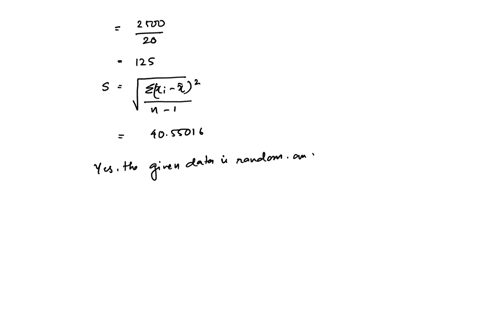 = 2500/20
= 125
S = √(Σ(xi - x̄)²/(n - 1))
= 40.55016
Yes. the given data is random. an.